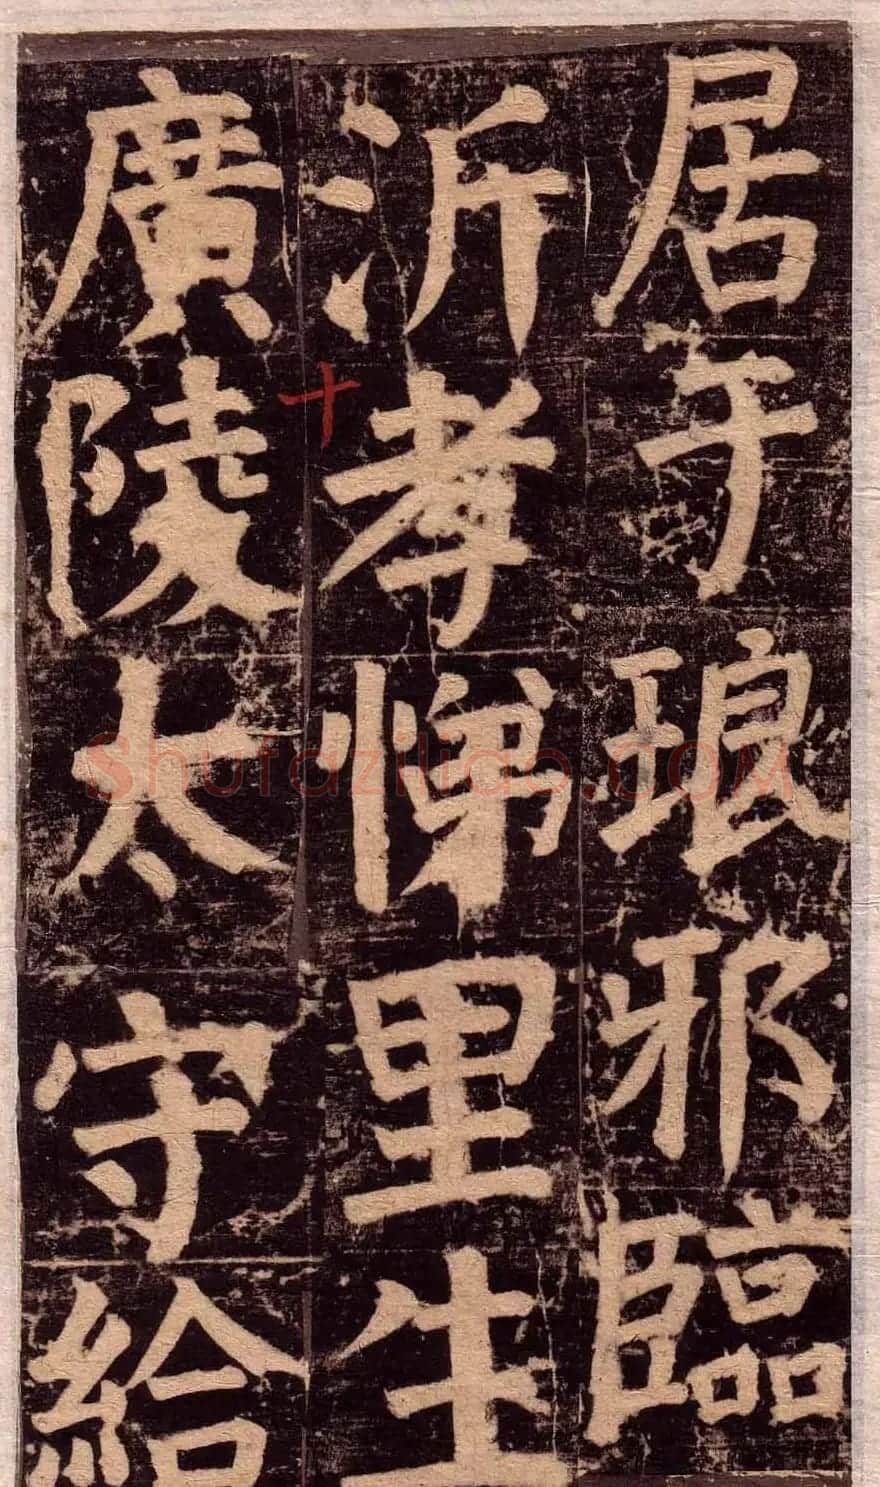 居于琅邪臨
沂孝悌里生
廣陵太守給
十
shufaziliao.com